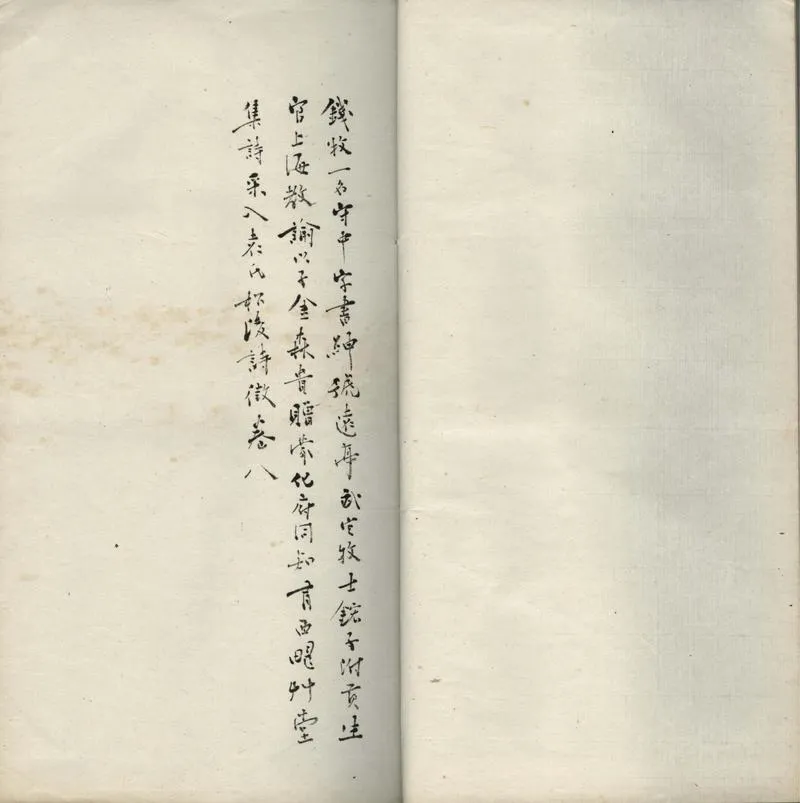 錢牧一名守中字書紳號遠亭武定牧士鎔子附貢生
官上海教諭以子金森貴贈蒙化府同知有西畼艸堂
集詩采入袁氏松陵詩徵卷八